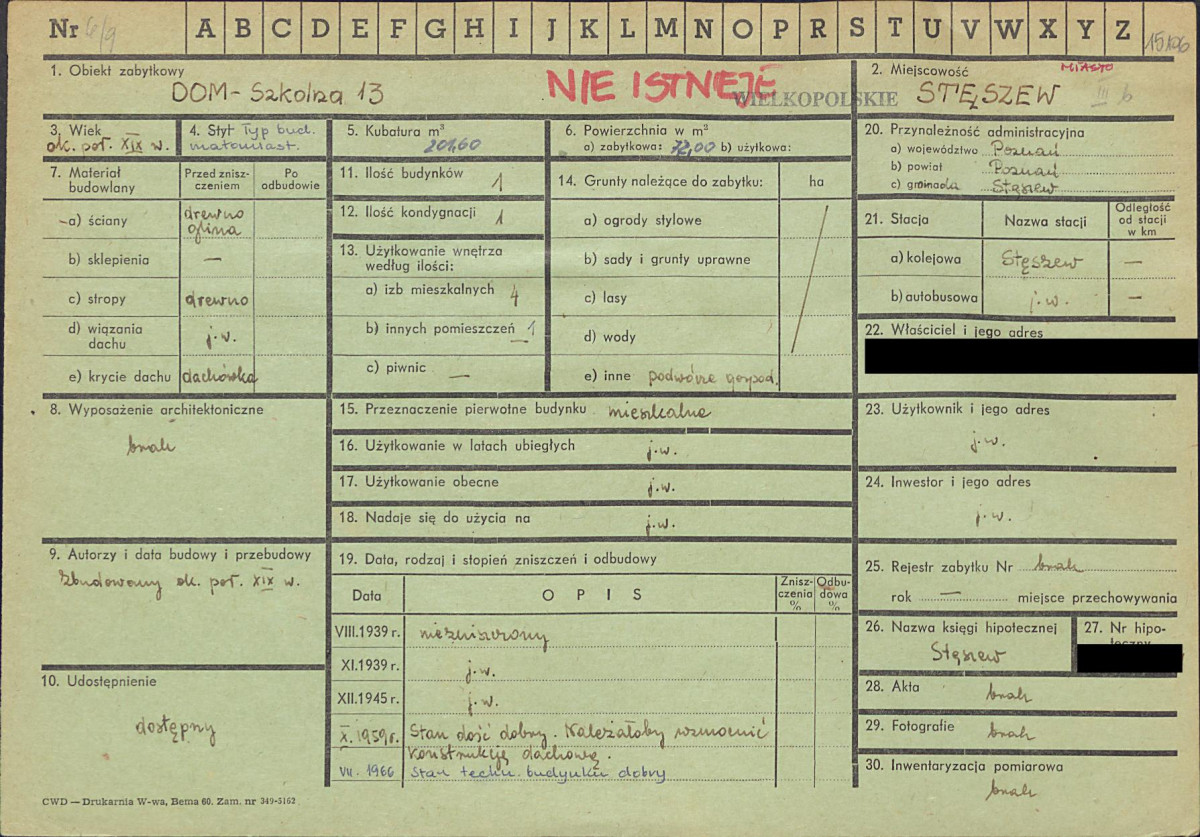 Nr 6/9 A B C D E F G H I J K L M N O P R S T U V W X Y Z
1. Obiekt zabytkowy
DOM - Szkolna 13
NIE ISTNIEJE
WIELKOPOLSKIE
2. Miejscowość
MIASTO
STĘSZEW
III b
3. Wiek
ok. poł. XIX w.
4. Styl Typ bud.
małomiast.
5. Kubatura m³
201,60
6. Powierzchnia w m²
a) zabytkowa: 72,00 b) użytkowa:
7. Materiał budowlany
Przed zniszczeniem
Po odbudowie
a) ściany drewno glina
b) sklepienia —
c) stropy drewno
d) wiązania dachu j.w.
e) krycie dachu dachówka
8. Wyposażenie architektoniczne
brak
9. Autorzy i data budowy i przebudowy
Zbudowany ok. poł. XIX w.
10. Udostępnienie
dostępny
11. Ilość budynków 1
12. Ilość kondygnacji 1
13. Użytkowanie wnętrza
według ilości:
a) izb mieszkalnych 4
b) innych pomieszczeń 1
c) piwnic —
14. Grunty należące do zabytku: ha
a) ogrody stylowe
b) sady i grunty uprawne
c) lasy
d) wody
e) inne podwórze gospod.
15. Przeznaczenie pierwotne budynku mieszkalne
16. Użytkowanie w latach ubiegłych j.w.
17. Użytkowanie obecne j.w.
18. Nadaje się do użycia na j.w.
19. Data, rodzaj i stopień zniszczeń i odbudowy
Data OPIS Zniszczenia % Odbudowa %
VIII.1939 r. niezniszczony
XI.1939 r. j.w.
XII.1945 r. j.w.
X. 1959 r. Stan dość dobry. Należałoby wzmocnić
konstrukcję dachową.
VII. 1966 Stan techn. budynku dobry
20. Przynależność administracyjna
a) województwo Poznań
b) powiat Poznań
c) gromada Stęszew
21. Stacja Nazwa stacji Odległość od stacji w km
a) kolejowa Stęszew —
b) autobusowa j.w. —
22. Właściciel i jego adres
23. Użytkownik i jego adres
j.w.
24. Inwestor i jego adres
j.w.
25. Rejestr zabytku Nr brak
rok — miejsce przechowywania
26. Nazwa księgi hipotecznej
Stęszew
27. Nr hipoteczny
28. Akta
brak
29. Fotografie
brak
30. Inwentaryzacja pomiarowa
brak
CWD — Drukarnia W-wa, Bema 60. Zam. nr 349-5162